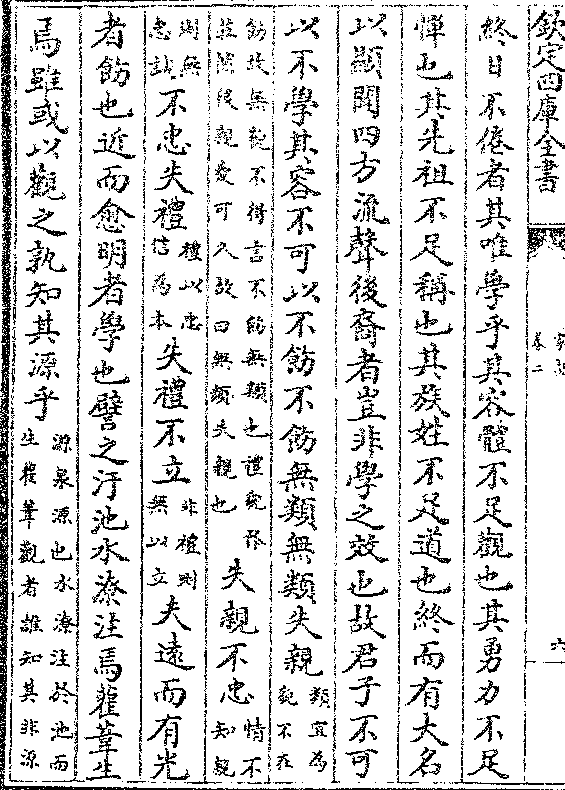 欽定四庫全書
家語
卷二
六
終日不倦者其唯學乎其容體不足觀也其勇力不足
憚也其先祖不足稱也其族姓不足道也終而有大名
以顯聞四方流聲後裔者豈非學之效也故君子不可
以不學其容不可以不飭不飭無類無類失親類宜為貌不在
飭故無貌不得言不飭無類也禮貌矜莊然後親愛可久故曰無類失親也失親不忠情不相親
則無忠誠不忠失禮禮以忠信為本失禮不立非禮則無以立夫遠而有光
者飭也近而愈明者學也譬之汙池水潦注焉雚葦生
焉雖或以觀之孰知其源乎源泉源也水潦注於池而生雚葦觀者誰知其非源